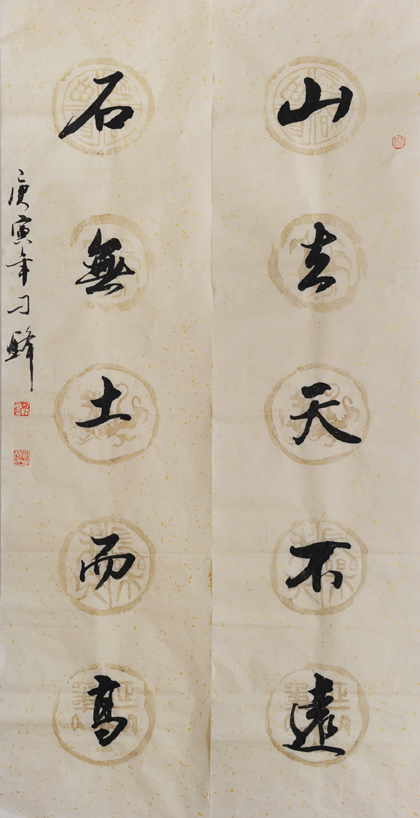 山去天不遠
石無土而高
庚寅年刁